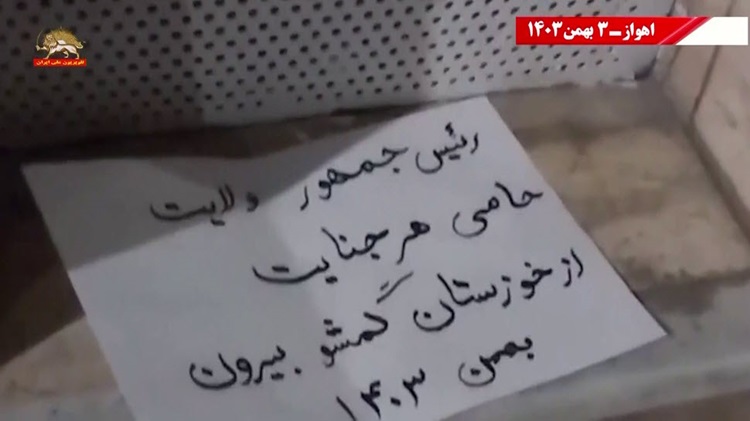 اهواز ــ ۳ بهمن ۱۴۰۳
تلویزیون ملی ایران
رئیس جمهور ولایت
حامی هر جنایت
از خوزستان گمشو بیرون
بهمن ۱۴۰۳